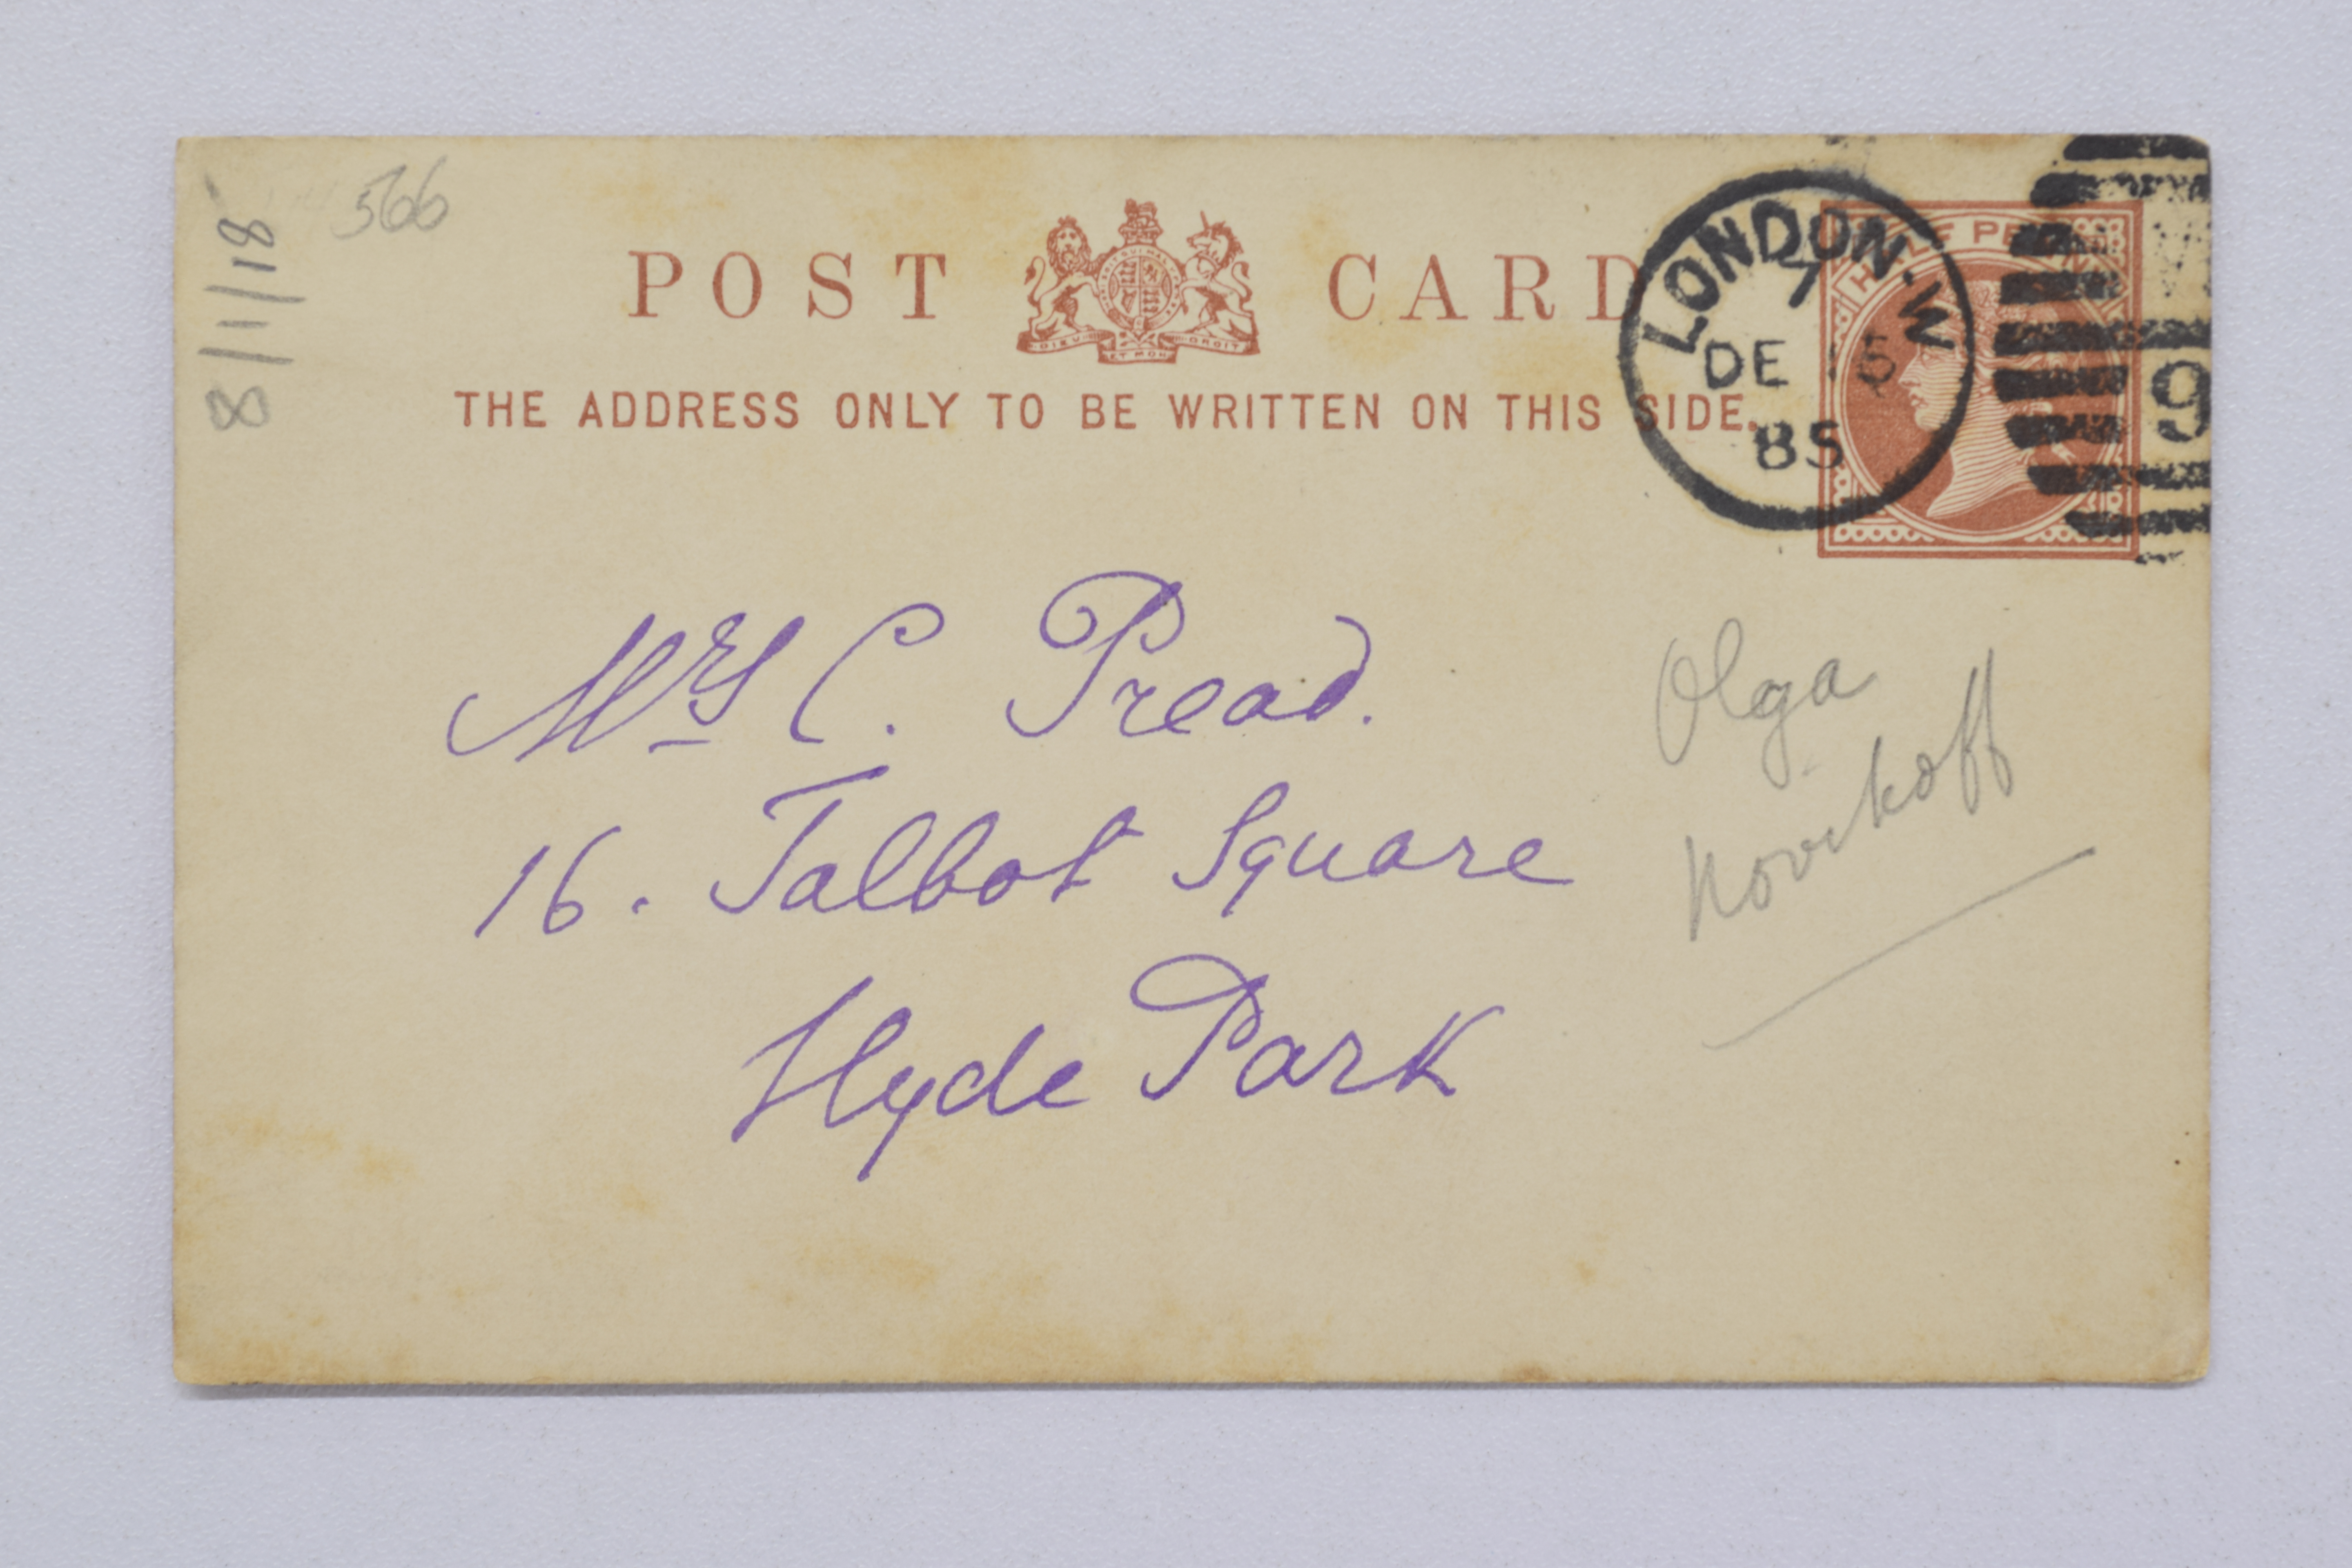 8/1/18
566
POST CARD
DIEU ET MON DROIT
THE ADDRESS ONLY TO BE WRITTEN ON THIS SIDE.
HALF PENNY
LONDON·W
7
DE 15
85
9
Mrs C. Pread.
16. Talbot Square
Hyde Park
Olga
Novikoff